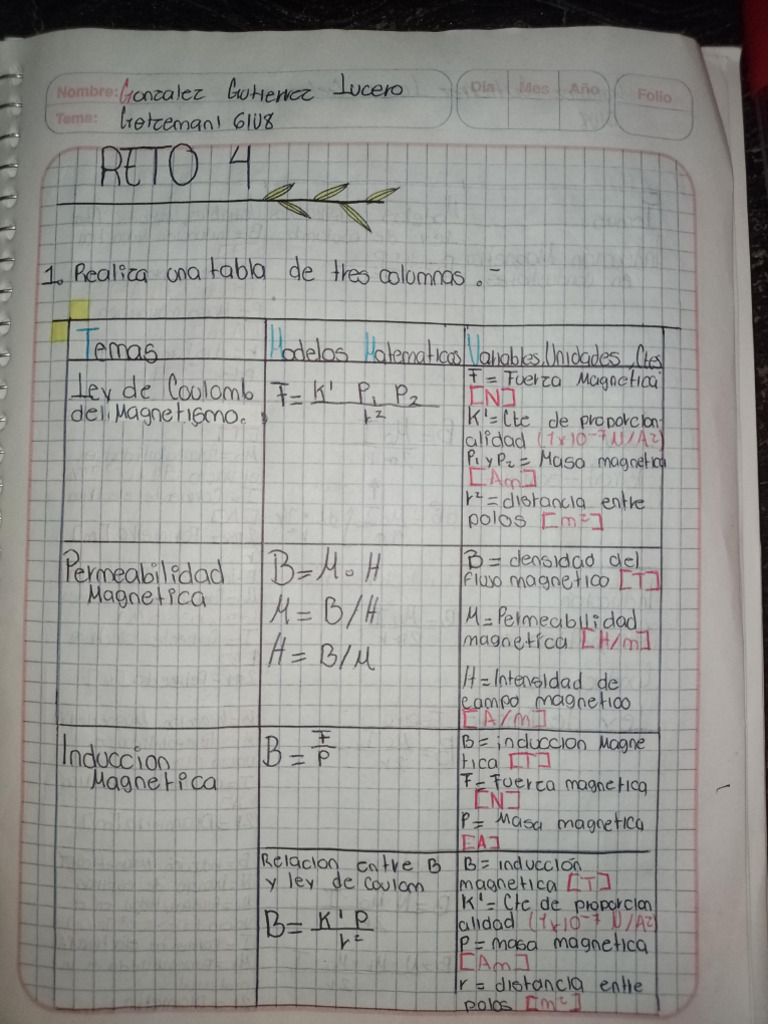 Nombre: Gonzalez Gutierrez Lucero
Tema: Getzemani 6IU8
Día Mes Año
Folio
RETO 4
1. Realiza una tabla de tres columnas.-
Temas
Modelos Matematicos
Variables, Unidades, Ctes
Ley de Coulomb
del Magnetismo.
F = K' P₁ P₂
r²
F = Fuerza Magnetica
[N]
K' = Cte de proporcion
alidad (1x10⁻⁷ N/A²)
P₁ y P₂ = Masa magnetica
[Am]
r² = distancia entre
polos [m²]
Permeabilidad
Magnetica
B = M · H
M = B/H
H = B/M
B = densidad del
fluso magnetico [T]
M = Permeabilidad
magnetica [H/m]
H = Intensidad de
campo magnetico
[A/m]
Induccion
Magnetica
B = F
P
B = induccion Magne
tica [T]
F = Fuerza magnetica
[N]
P = Masa magnetica
[A]
Relacion entre B
y ley de coulom
B = K' P
r²
B = inducción
magnetica [T]
K' = Cte de proporcion
alidad (1x10⁻⁷ N/A²)
P = masa magnetica
[Am]
r = distancia entre
polos [m²]